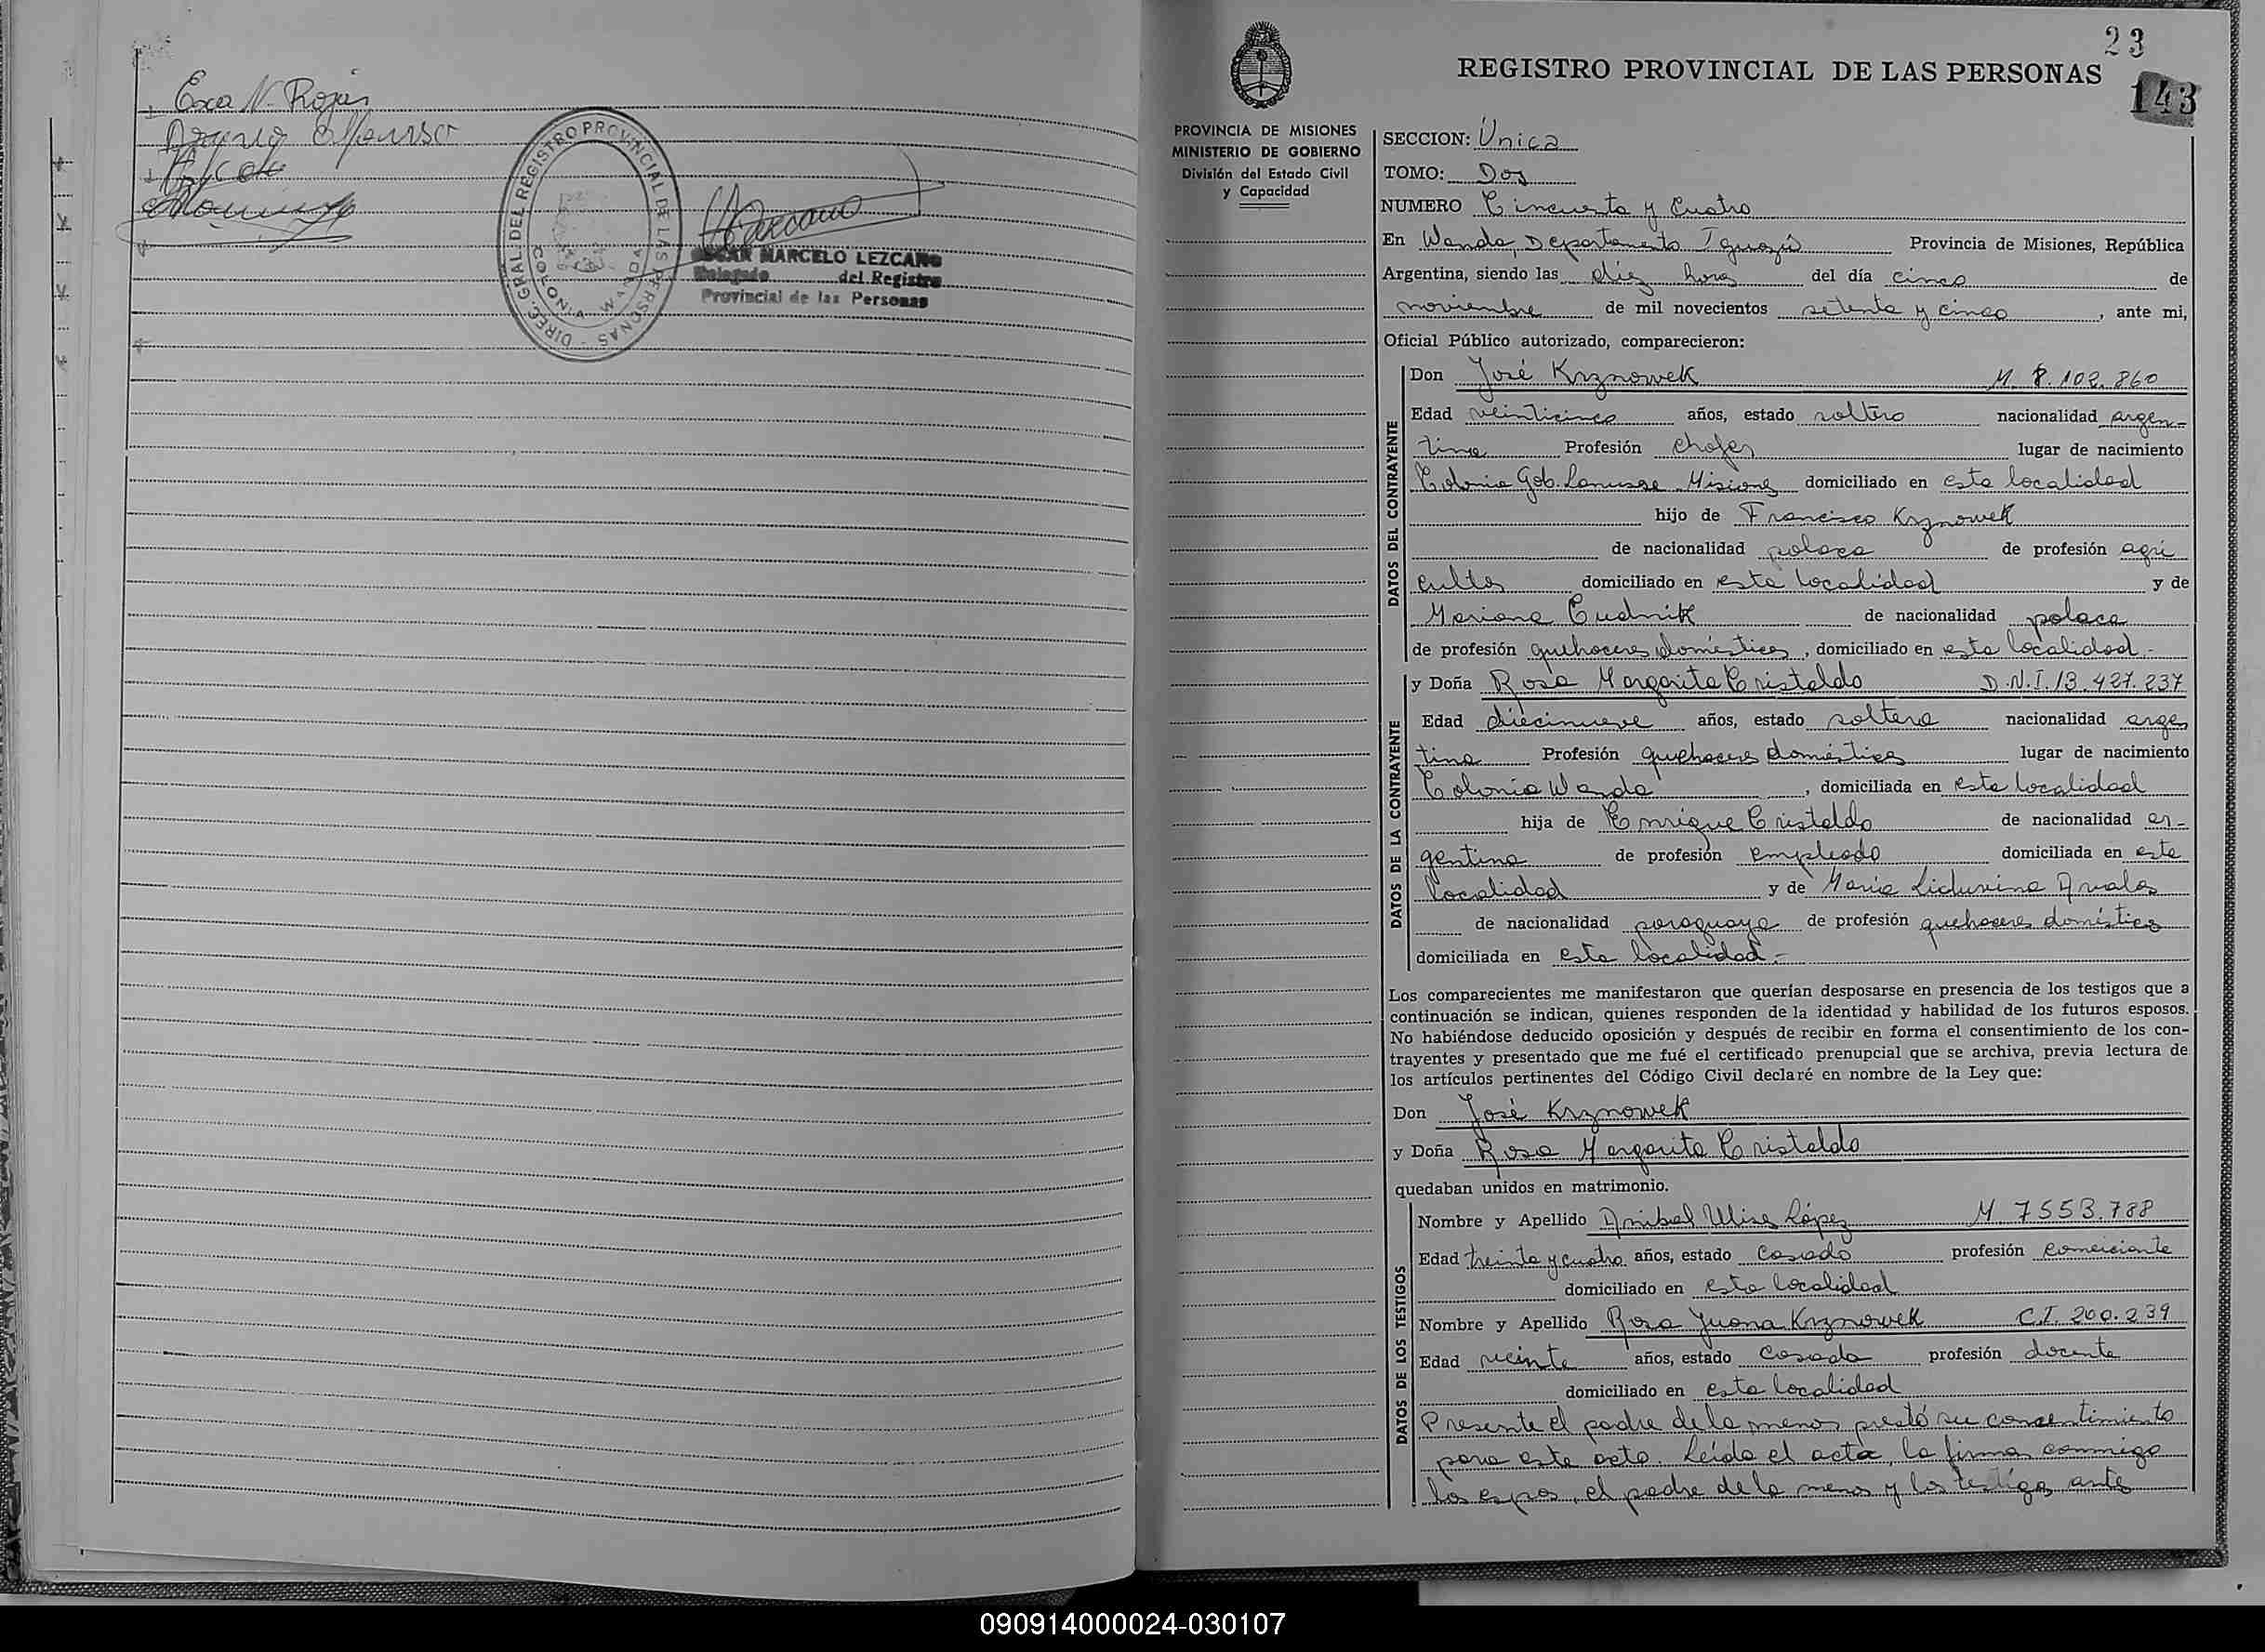 Exa N. Rojas
DIREC. GRAL. DEL REGISTRO PROVINCIAL DE LAS PERSONAS
COLONIA WANDA
OSCAR MARCELO LEZCANO
Delegado del Registro
Provincial de las Personas
23
REGISTRO PROVINCIAL DE LAS PERSONAS
143
PROVINCIA DE MISIONES
MINISTERIO DE GOBIERNO
División del Estado Civil
y Capacidad
SECCION: Unica
TOMO: Dos
NUMERO Cincuenta y Cuatro
En Wanda, Departamento Iguazú Provincia de Misiones, República
Argentina, siendo las diez horas del día cinco de
noviembre de mil novecientos setenta y cinco, ante mi,
Oficial Público autorizado, comparecieron:
DATOS DEL CONTRAYENTE
Don José Krznowek M 8.102.860
Edad veinticinco años, estado soltero nacionalidad argen-
tina Profesión chofer lugar de nacimiento
Colonia Gob. Lanusse Misiones domiciliado en esta localidad
hijo de Francisco Krznowek
de nacionalidad polaca de profesión agri
cultor domiciliado en esta localidad y de
Mariana Cudnik de nacionalidad polaca
de profesión quehaceres domésticos, domiciliado en esta localidad.-
DATOS DE LA CONTRAYENTE
y Doña Rosa Margarita Cristaldo D.N.I. 13.427.237
Edad diecinueve años, estado soltera nacionalidad argen
tina Profesión quehaceres domésticos lugar de nacimiento
Colonia Wanda, domiciliada en esta localidad
hija de Enrique Cristaldo de nacionalidad ar-
gentina de profesión empleado domiciliada en esta
localidad y de María Liduvina Avalos
de nacionalidad paraguaya de profesión quehaceres domésticos
domiciliada en esta localidad.-
Los comparecientes me manifestaron que querían desposarse en presencia de los testigos que a
continuación se indican, quienes responden de la identidad y habilidad de los futuros esposos.
No habiéndose deducido oposición y después de recibir en forma el consentimiento de los con-
trayentes y presentado que me fué el certificado prenupcial que se archiva, previa lectura de
los artículos pertinentes del Código Civil declaré en nombre de la Ley que:
Don José Krznowek
y Doña Rosa Margarita Cristaldo
quedaban unidos en matrimonio.
DATOS DE LOS TESTIGOS
Nombre y Apellido Anibal Ulises López M. 7553.788
Edad treinta y cuatro años, estado casado profesión comerciante
domiciliado en esta localidad
Nombre y Apellido Rosa Juana Krznowek C.I. 200.239
Edad veinte años, estado casada profesión docente
domiciliado en esta localidad
Presente el padre de la menor prestó su consentimiento
para este acto. Leída el acta, la firman conmigo
los esposos, el padre de la menor y los testigos antes
090914000024-030107